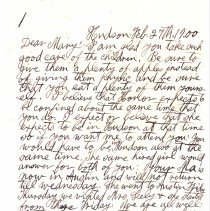 1
Hudson Feb. 27th 1900
Dear Mary: I am glad you take such
good care of the children. Be sure to
give them plenty of apples instead
of giving them physic and be sure
that you eat plenty of them your-
self. I believe that expects to
be confined about the same time that
you do. I expect or believe that she
expects to be in Hudson at that time
so if you want me to attend you you
would have to be in Hudson also at the
same time. The same hired girl would
answer for both of you. Your Ma is
now in Austin and will not return
till Wednesday. She went to Austin
Thursday we visited Mrs. and she
from there Friday. We are all well